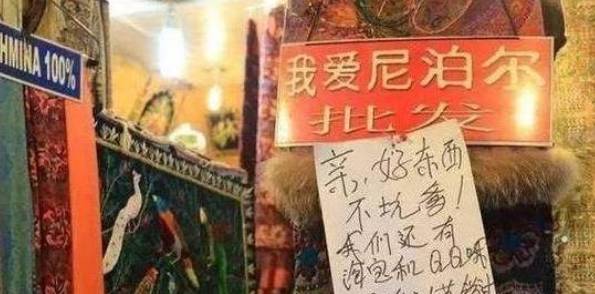 HMINA 100%
我爱尼泊尔
批发
亲,好东西
不坑爹!
我们还有
淘宝和QQ呀